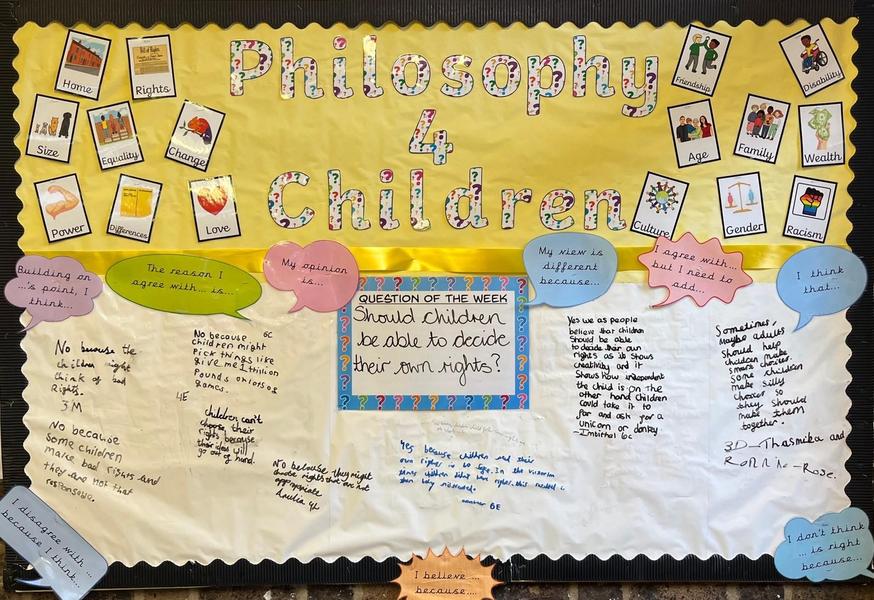 Philosophy
4
Children
Home
Bill of Rights
Rights
Size
Equality
Change
Power
Differences
Love
Friendship
Disability
Age
Family
Wealth
Culture
Gender
Racism
Building on
...'s point, I
think...
The reason I
agree with... is...
My opinion
is...
My view is
different
because...
I agree with...
but I need to
add...
I think
that...
QUESTION OF THE WEEK
Should children
be able to decide
their own rights?
No because the
children might
think of bad
Rights.
3M
No because
some children
make bad rights and
they are not that
No because 6C
children might
Pick things like
give me 1 million
Pounds or lots of
games.
4E
children can't
choose their
rights because
go out of hand.
No because they might
choose rights that are not
appropriate
4L
Yes because children and their
own rights is so
Yes we as people
believe that children
Should be able
to decide their own
rights as it shows
creativity and it
Shows how independent
the child is on the
other hand children
could take it to
far and ask for a
unicorn or donkey
6c
Sometimes,
Maybe adults
should help
children make
smart choices.
Some children
make silly
choices so
they should
make them
together.
3D - Thasmika and
Ronnie-Rose.
I disagree with ...
because I think...
I believe ...
because....
I don't think
... is right
because...